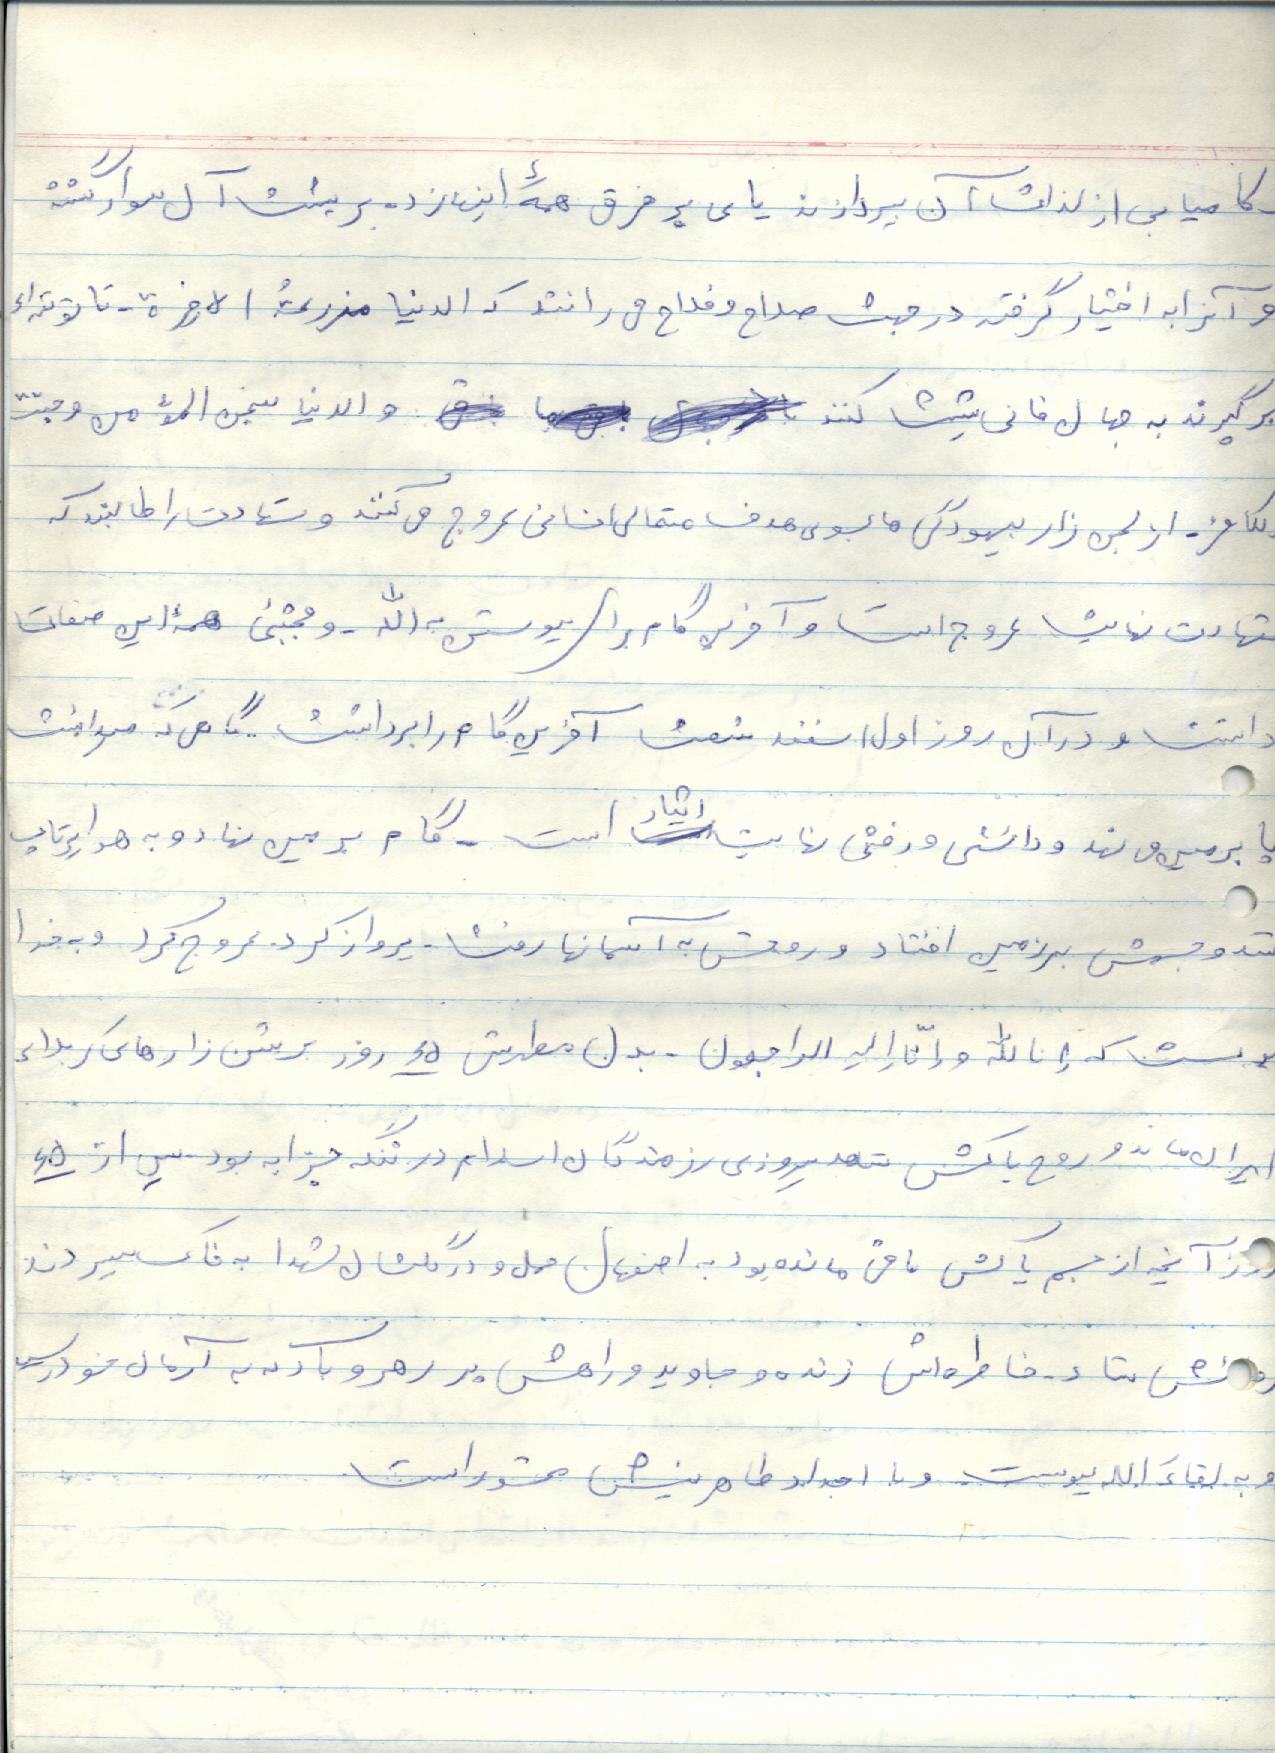 کامیابی از لذات آن بپردازند پای بر فرق همهٔ اینها زد. بر پشت آن سوار گشته
و آنرا به اختیار گرفته در جهت صلاح و فلاح می رانند که الدنیا مزرعهٔ الاخرة - تا توشه‌اء
برگیرند به جهان فانی پشت کنند و الدنیا سجن المؤمن و جنت
للکافر - از لجن زار بیهودگی ها بسوی هدف متعالی انسانی عروج می کنند و شهادت را طالبند که
شهادت نهایت عروج است و آخرین گام برای پیوستن به الله - و مجتبی همهٔ این صفات
داشت و در آن روز اول اسفند شصت آخرین گام را برداشت - گامی که میدانست
پا بر مین می نهد و دانستی و رفتی نهایت ایثار است - گام بر مین نهاد و به هوا پرتاب
شد و جسمش بر زمین افتاد و روحش به آسمانها رفت - پرواز کرد - عروج کرد و به خدا
پیوست که إنا لله و إنّا إلیه الراجعون - بدن مطهرش ۴۵ روز بر شن زارهای کربلاء
ایران ماند و روح پاکش شاهد پیروزی رزمندگان اسلام در تنگه چزابه بود - پس از ۴۵
روز آنچه از جسم پاکش باقی مانده بود به اصفهان حمل و در گلستان شهدا به خاک سپردند
روحش شاد - خاطره‌اش زنده و جاوید و راهش پر رهرو باد که به آرمان خود رسید
و به لقاءَ الله پیوست و با اجداد طاهرینش محشور است